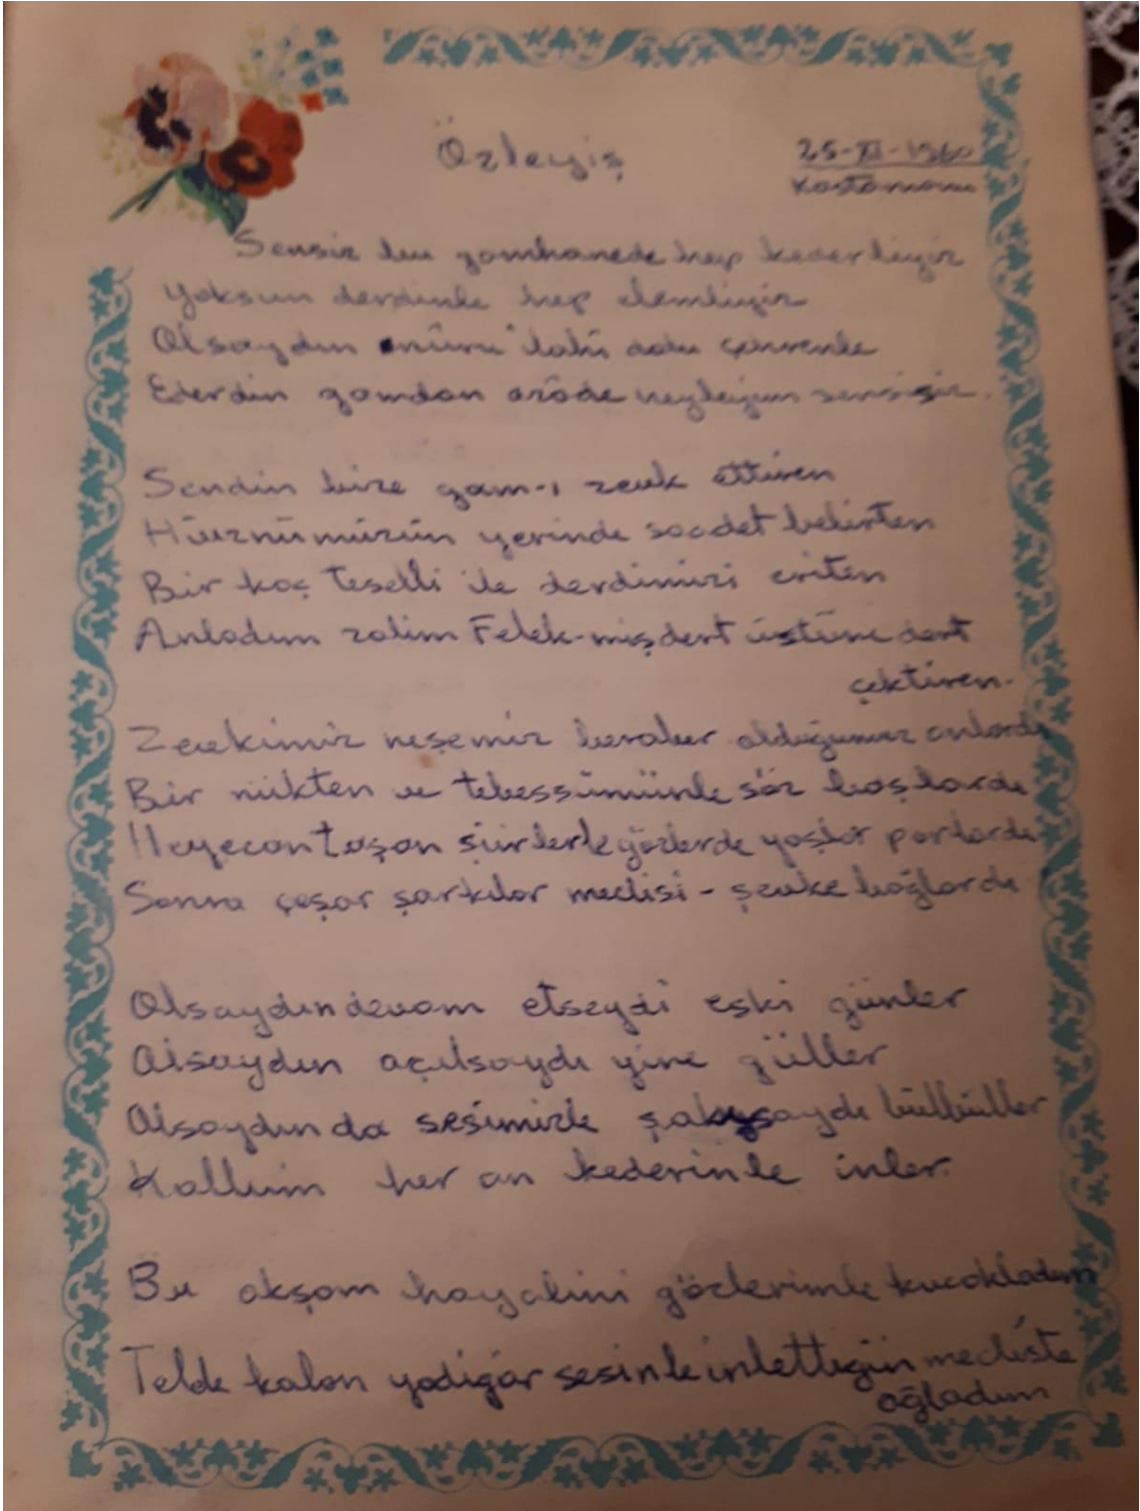 Özleyiş
25-XI-1960
Kastamonu
Sensiz bu gamhanede hep kederliyiz
Yoksun derdinle hep elemliyiz
Olsaydın nûru ilahî dolu çevrenle
Ederdin gamdan azâde neyleyim sensiziz.
Sendin bize gam-ı zevk ettiren
Hüznümüzün yerinde saadet belirten
Bir kaç teselli ile derdimizi eriten
Anladım zalim Felek-miş dert üstüne dert
çektiren.
Zevkimiz neşemiz beraber olduğumuz anlardı
Bir nükten ve tebessümünle söz başlardı
Heyecan taşan şiirlerle gözlerde yaşlar parlardı
Sonra çoşar şarkılar meclisi - şevke bağlardı
Olsaydın devam etseydi eski günler
Olsaydın açılsaydı yine güller
Olsaydın da sesimizle şakısaydı bülbüller
Kalbim her an kederinle inler.
Bu akşam hayalini gözlerimle kucakladım
Telde kalan yadigâr sesinle inlettiğin mecliste
ağladım